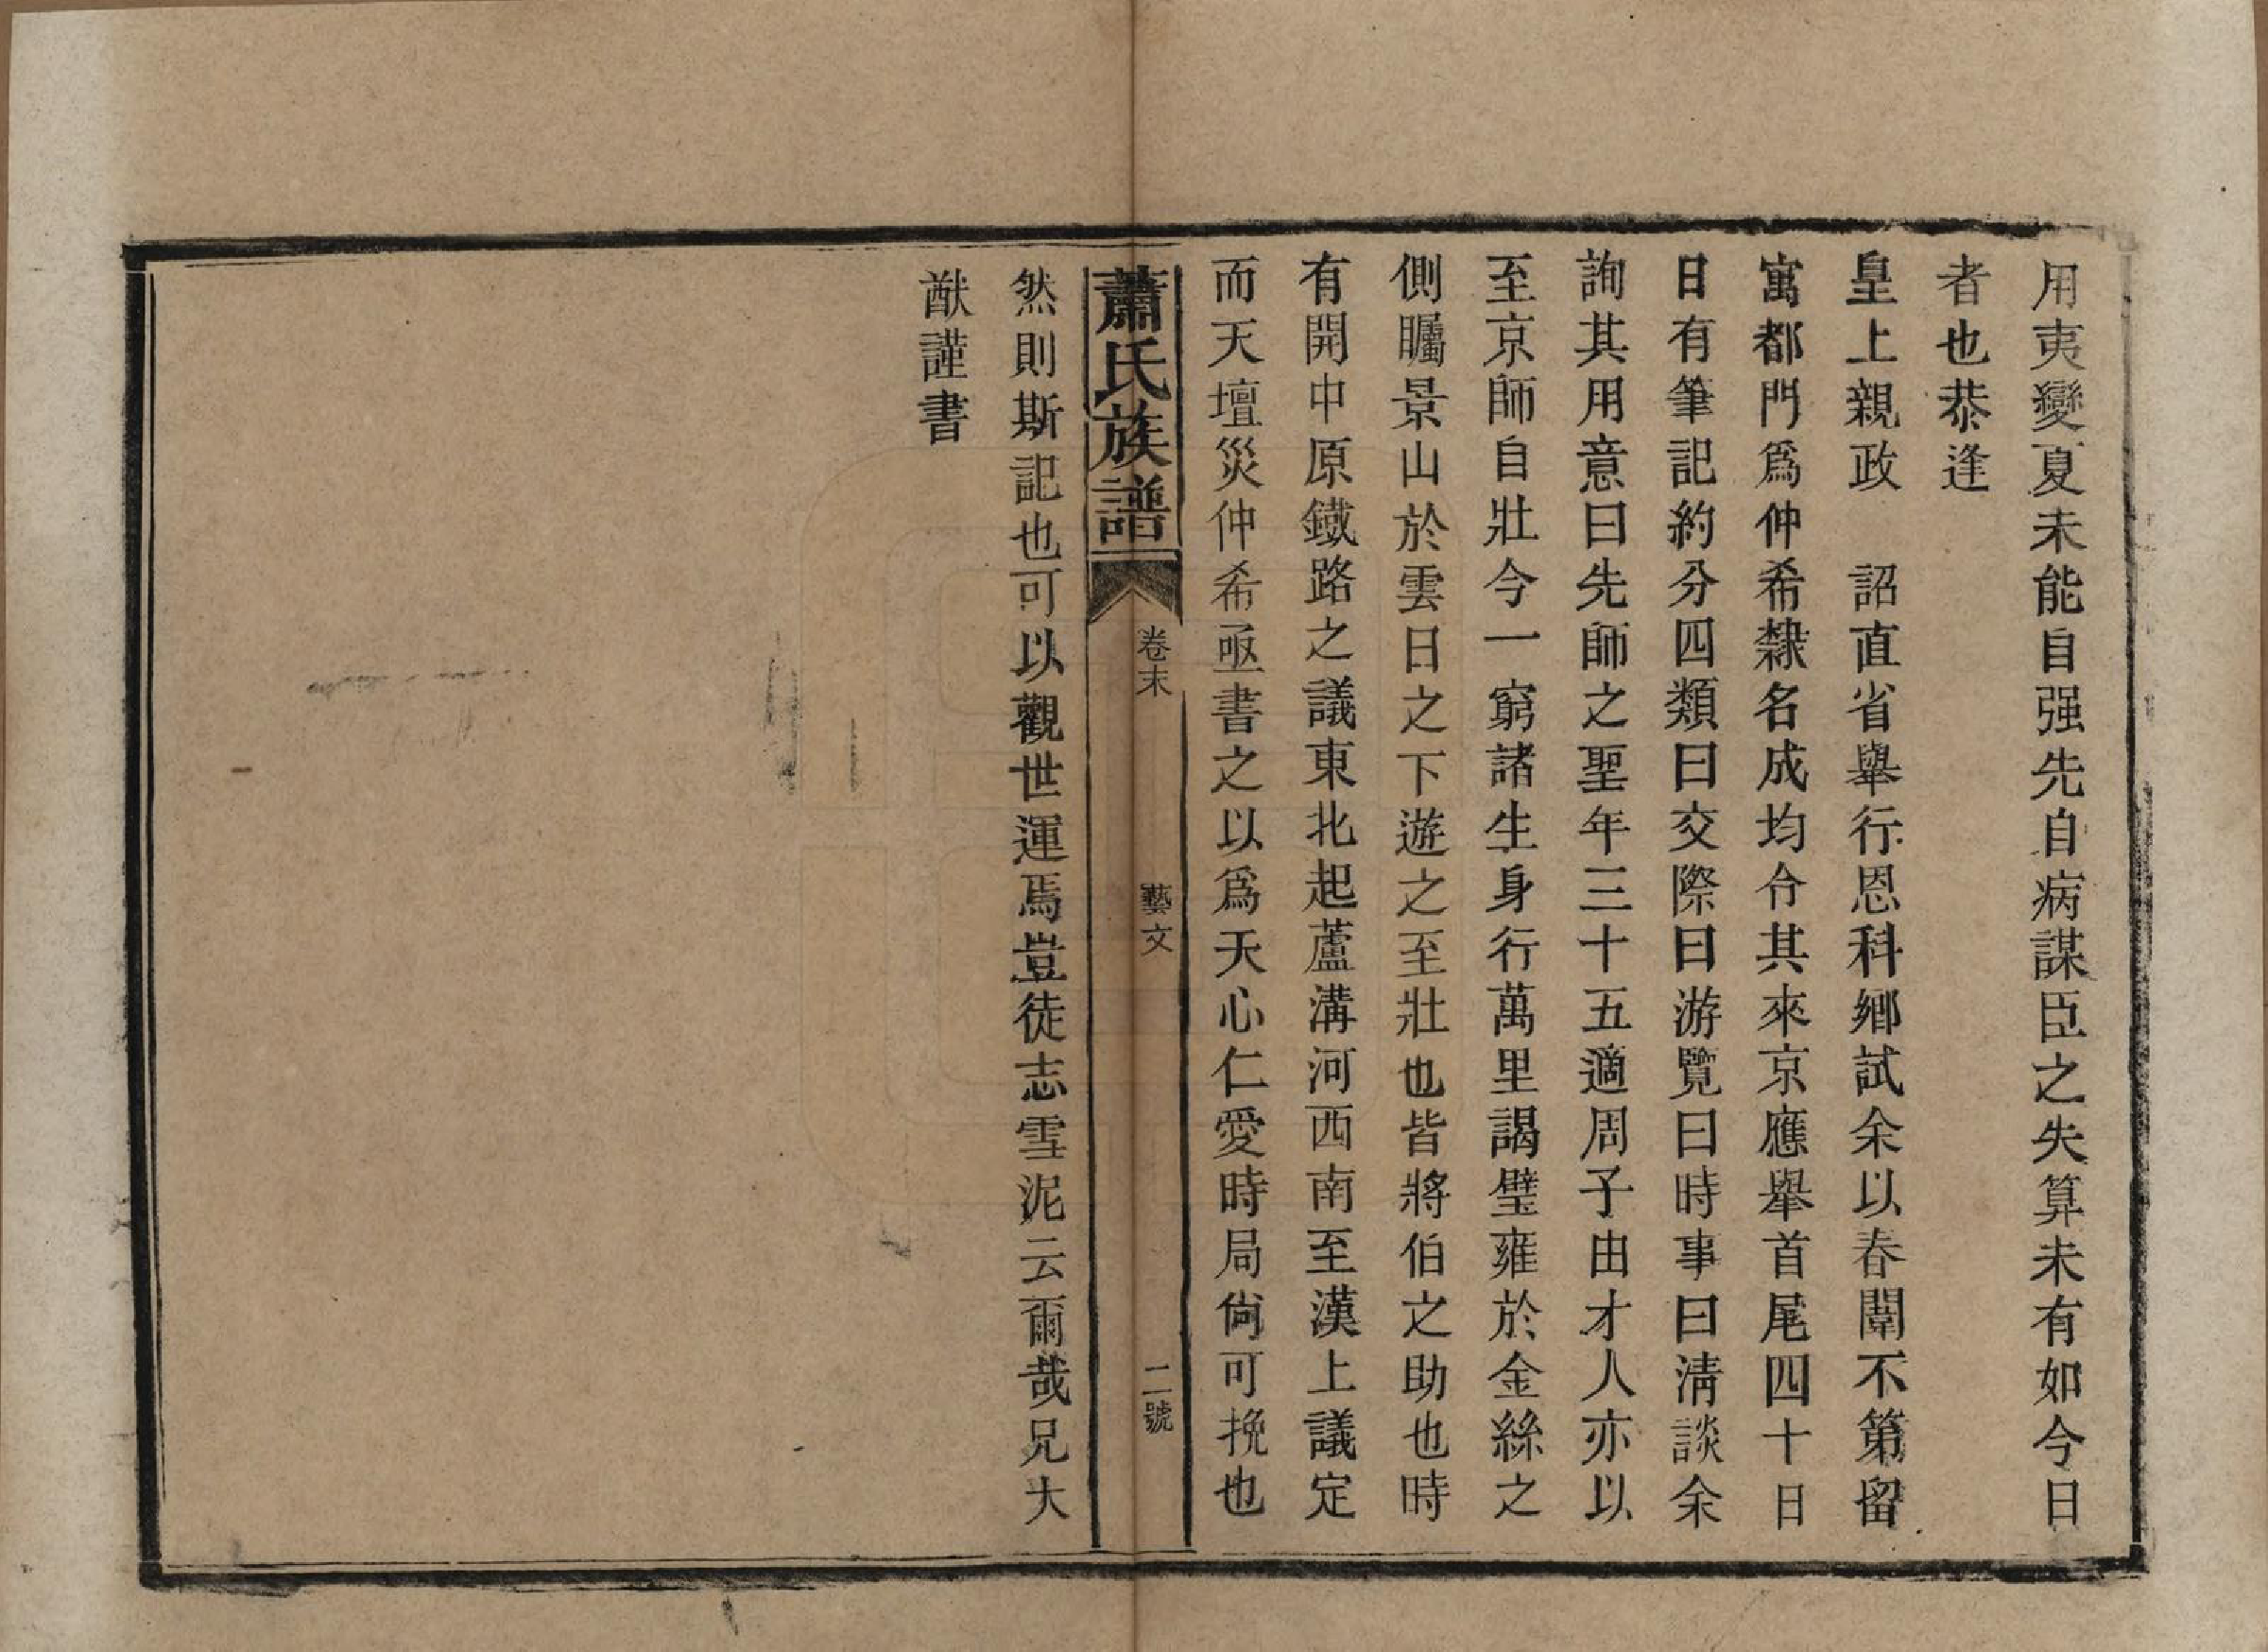 用夷變夏未能自强先自病謀臣之失算未有如今日
者也恭逢
皇上親政　詔直省舉行恩科鄉試余以春闈不第留
寓都門爲仲希隸名成均令其來京應舉首尾四十日
日有筆記約分四類曰交際曰游覽曰時事曰淸談余
詢其用意曰先師之聖年三十五適周子由才人亦以
至京師自壯今一窮諸生身行萬里謁璧雍於金絲之
側矚景山於雲日之下遊之至壯也皆將伯之助也時
有開中原鐵路之議東北起蘆溝河西南至漢上議定
而天壇災仲希亟書之以爲天心仁愛時局尙可挽也
蕭氏族譜
卷末
藝文
二號
然則斯記也可以觀世運焉豈徒志雪泥云爾哉兄大
猷謹書